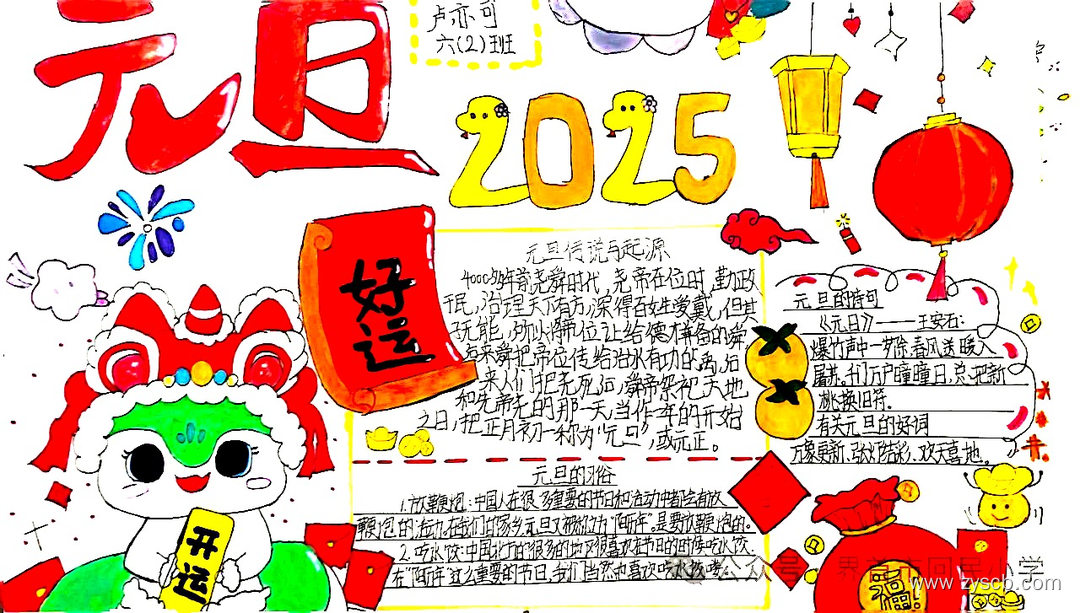 元旦
卢亦可
六(2)班
2025
好运
元旦传说与起源
4000多年前尧舜时代,尧帝在位时,勤政
于民,治理天下有方,深得百姓爱戴,但其
子无能,所以将帝位让给德才兼备的舜
后来舜把帝位传给治水有功的禹,后
来人们把尧死后,舜帝祭祀天地
和先帝尧的那一天,当作一年的开始
之日,把正月初一称为"元旦",或元正。
元旦的习俗
1.放鞭炮:中国人在很多重要的节日和活动中都会有放
鞭炮的活动.在我们的家乡,元旦又被称为"阳年".是要放鞭炮的.
2.吃水饺:中国北方的很多的地方很喜欢在节日的时候吃水饺.
在"阳年"这么重要的节日,我们当然也喜欢吃水饺
元旦的诗句
《元日》——王安石:
爆竹声中一岁除,春风送暖入
屠苏.千门万户曈曈日,总把新
桃换旧符.
有关元旦的好词
万象更新、张灯结彩、欢天喜地。
开运
福
公众号·界首市回民小学
www.zyscb.com